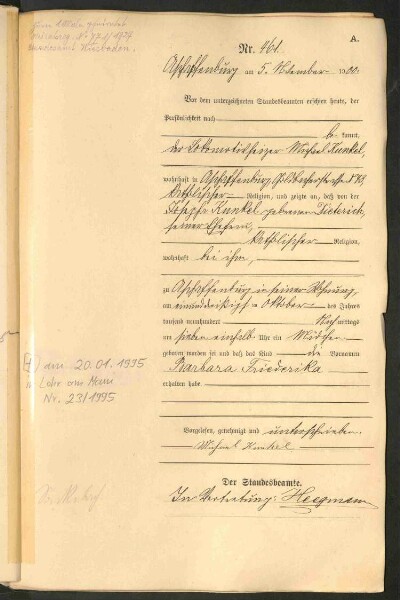 A.
Nr. 461.
Aschaffenburg am 5. November 1900.
Vor dem unterzeichneten Standesbeamten erschien heute, der
Persönlichkeit nach
kannt,
der Lokomotivheizer Michael Kunkel,
wohnhaft in Aschaffenburg,
katholischer Religion, und zeigte an, daß von der
Josepha Kunkel gebornen Dieterich,
seiner Ehefrau,
katholischer Religion,
wohnhaft bei ihm,
zu Aschaffenburg in seiner Wohnung
am einunddreißigsten Oktober des Jahres
tausend neunhundert Nachmittags
um sieben einhalb Uhr ein Mädchen
geboren worden sei und daß das Kind die Vornamen
Barbara Friederika
erhalten habe
Vorgelesen, genehmigt und unterschrieben.
Michael Kunkel
Der Standesbeamte.
In Vertretung: Heegmann
am 20.01.1995
in Lohr am Main
Nr. 23/1995